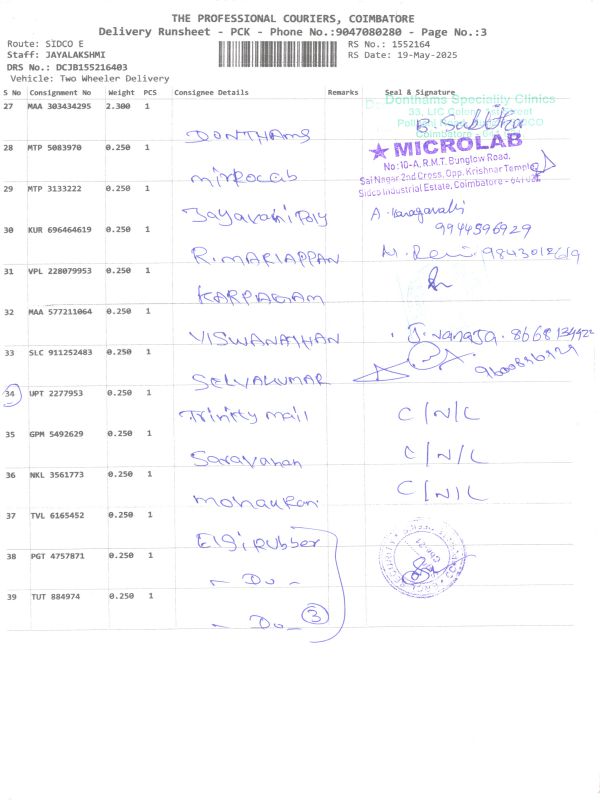 THE PROFESSIONAL COURIERS, COIMBATORE
Delivery Runsheet - PCK - Phone No.:9047080280 - Page No.:3
Route: SIDCO E
RS No.: 1552164
Staff: JAYALAKSHMI
RS Date: 19-May-2025
DRS No.: DCJB155216403
Vehicle: Two Wheeler Delivery
S No Consignment No Weight PCS Consignee Details Remarks Seal & Signature
27 MAA 303434295 2.300 1
DONTHAMS
Donthams Speciality Clinics
33, LIC Colony
Coimbatore
B. Sabitha
28 MTP 5083970 0.250 1
mirrocab
MICROLAB
No:10-A, R.M.T. Bunglow Road,
Sai Nagar 2nd Cross, Opp. Krishnar Temple
Sidco Industrial Estate, Coimbatore - 641 021
29 MTP 3133222 0.250 1
Jayarani Poly
A.
9944596929
30 KUR 696464619 0.250 1
R. MARIAPPAN
31 VPL 228079953 0.250 1
KARPAGAM
32 MAA 577211064 0.250 1
VISWANATHAN
J. Vanaja. 8668134422
33 SLC 911252483 0.250 1
SELVAKUMAR
34 UPT 2277953 0.250 1
Trinity mall C/N/L
35 GPM 5492629 0.250 1
Saravanan C/N/L
36 NKL 3561773 0.250 1
mohankan C/N/L
37 TVL 6165452 0.250 1
Elgi Rubber
38 PGT 4757871 0.250 1
- Do -
39 TUT 884974 0.250 1
- Do - 3